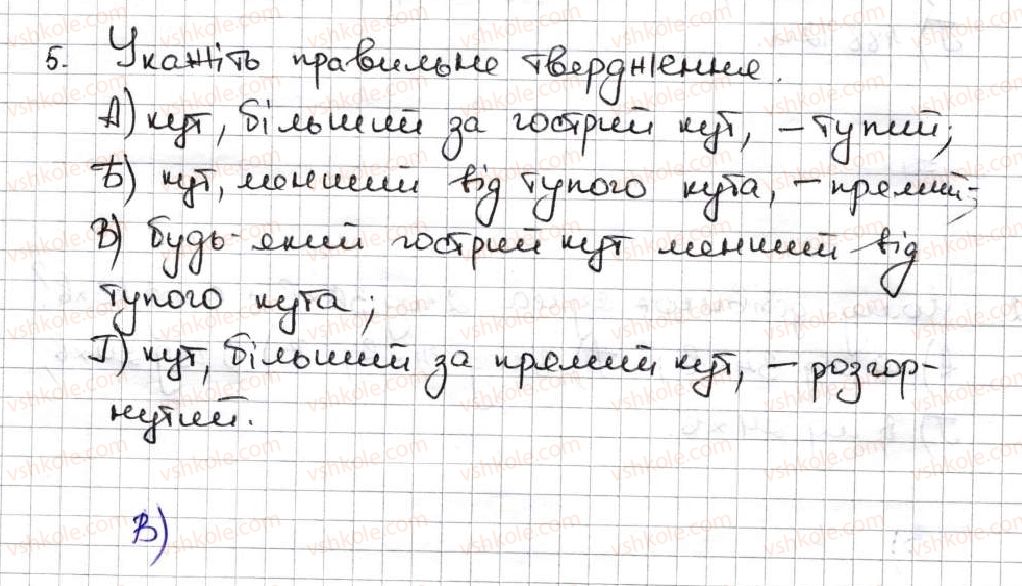 5. Укажіть правильне твердження.
А) кут, більший за гострий кут, – тупий;
Б) кут, менший від тупого кута, – прямий;
В) будь-який гострий кут менший від
тупого кута;
Г) кут, більший за прямий кут, – розгор-
нутий.
В)